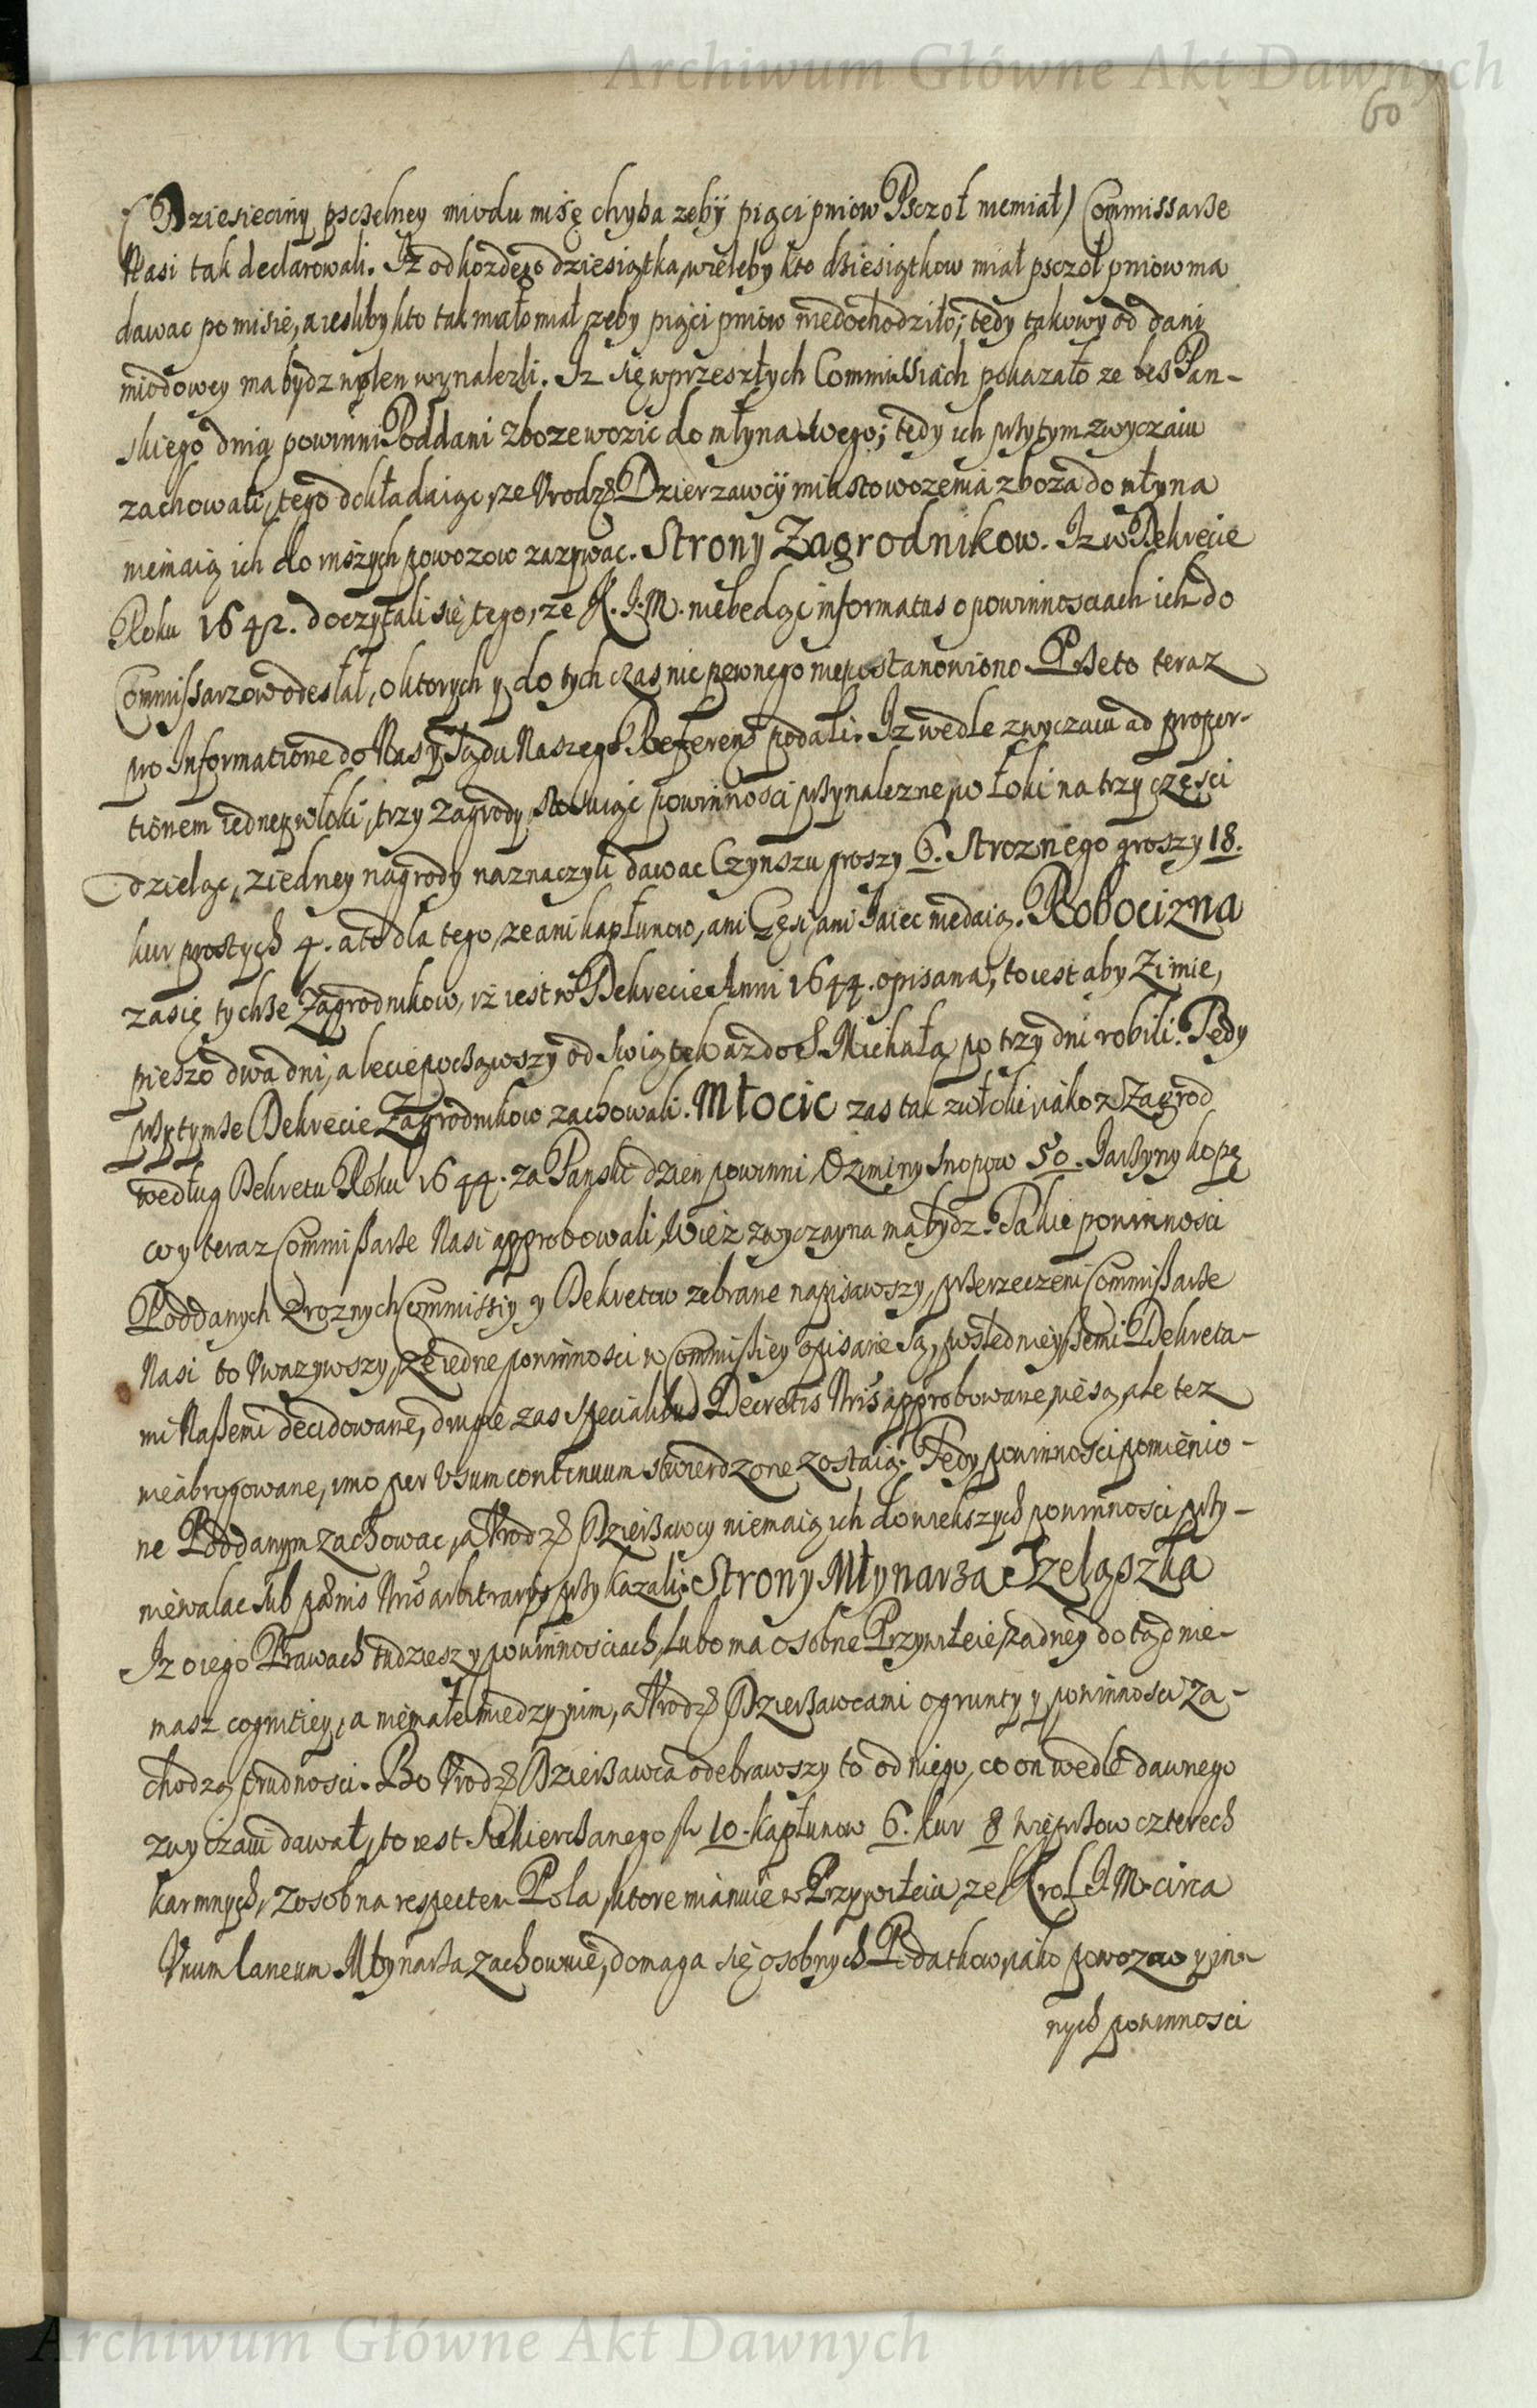 Archiwum Główne Akt Dawnych
60
(Dziesieciny pszczelney miodu misę chyba zeby piąci pniow Pszczoł niemiał) Commissarze
Nasi tak declarowali. Iz od kozdego dziesiątka, wieleby kto dziesiątkow miał psczoł pniow ma
dawac po misie, a iesliby kto tak mało miał, zeby piąci pniow niedochodziło; tedy takowy od dani
miodowey ma bydz wolen wynalezli. Iz się w przeszłych Commissiach pokazało ze bes Pan-
skiego dnia powinni Poddani zboze wozic do młyna swego; tedy ich przytym zwyczaiu
zachowali, tego dokładaiąc, ze Vrodz. Dzierzawcy miasto wozenia zboza do młyna
niemaią ich do inszych powozow zazywac. Strony Zagrodnikow. Iz w Dekrecie
Roku 1642. doczytali się tego, ze K. J. M. niebedąc informatus o powinnosciach ich do
Commissarzow odesłał, o ktorych y do tych czas nic pewnego niepostanowiono. Przeto teraz
pro Informatione do Nas y Sądu Naszego Referens podali. Iz wedle zwyczaiu ad propor-
tionem iedney włoki, trzy zagrody stosuiąc powinnosci przynalezne po włoki na trzy części
dzieląc, z iedney zagrody naznaczyli dawac Czynszu groszy 6. Stroznego groszy 18.
kur prostych 4. a to dla tego, ze ani kapłunow, ani Gęsi, ani Jaiec niedaią. Robocizna
zasię tychze Zagrodnikow, iz iest w Dekrecie Anni 1644. opisana, to iest aby Zimie,
pieszo dwa dni, a lecie począwszy od Swiątek az do S. Michała po trzy dni robili. Tedy
przy tymze Dekrecie Zagrodnikow zachowali. Młocic zas tak z włoki iako z Zagrod
według Dekretu Roku 1644. za Panski dzien powinni, Oziminy Snopow 50. Jarzyny kopę
co y teraz Commissarze Nasi approbowali, Wież zwyczayna ma bydz. Takie powinnosci
Poddanych z roznych Commissiy y Dekretow zebrane napisawszy, przerzeczeni Commissarze
Nasi to Vwazywszy, ze iedne powinnosci w Commissiey opisane są, poslednieyszemi Dekreta-
mi Naszemi decidowane, drugie zas specialibus Decretis Nris approbowane nie są, ale tez
nie abrogowane, imo per Vsum continuum stwierdzone zostaią. Tedy powinnosci pomienio-
ne Poddanym zachowac, a Vrodz. Dzierzawcy niemaią ich do wiekszych powinnosci przy-
niewalac sub pænis Nris arbitrarijs przykazali. Strony Młynarza Szelązka
Iz o iego Prawach tudziesz y powinnosciach, lubo ma osobne Przywileie, zadney dotąd nie-
masz cognitiey, a niemałe miedzy nim, a Vrodz. Dzierzawcami o grunty y powinnosci za-
chodzą trudnosci. Bo Vrodz. Dzierzawca odebrawszy to od niego, co on wedle dawnego
zwyczaiu dawał, to iest fl 10. kapłunow 6. kur 8 wieprzow czterech
karmnych, z osobna respectem Pola, ktore mianuie w Przywileiu, ze Krol J. M. circa
Vnum laneum Młynarza zachowuie, domaga się osobnych Podatkow, iako powozow y in-
nych powinnosci
Archiwum Główne Akt Dawnych